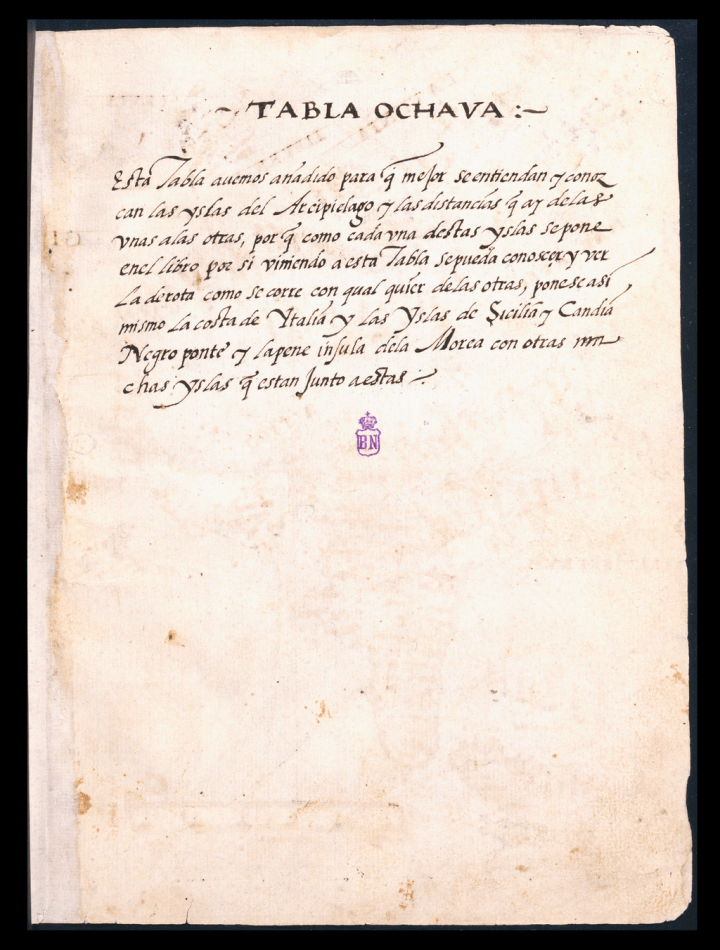 ~ TABLA OCHAVA :~
Esta Tabla auemos añadido para q̃ mejor se entiendan y conoz
can las yslas del Arcipielago y las distancias q̃ ay de las
vnas a las otras, por q̃ como cada vna destas yslas se pone
en el libro por si viniendo a esta Tabla se pueda conoscer y ver
La derota como se corre con qual quier de las otras, ponese asi
mismo La costa de Ytalia y las Yslas de Sicilia y Candia
Negro ponte y la pene insula de la Morea con otras mu
chas yslas q̃ estan Junto a estas
BN